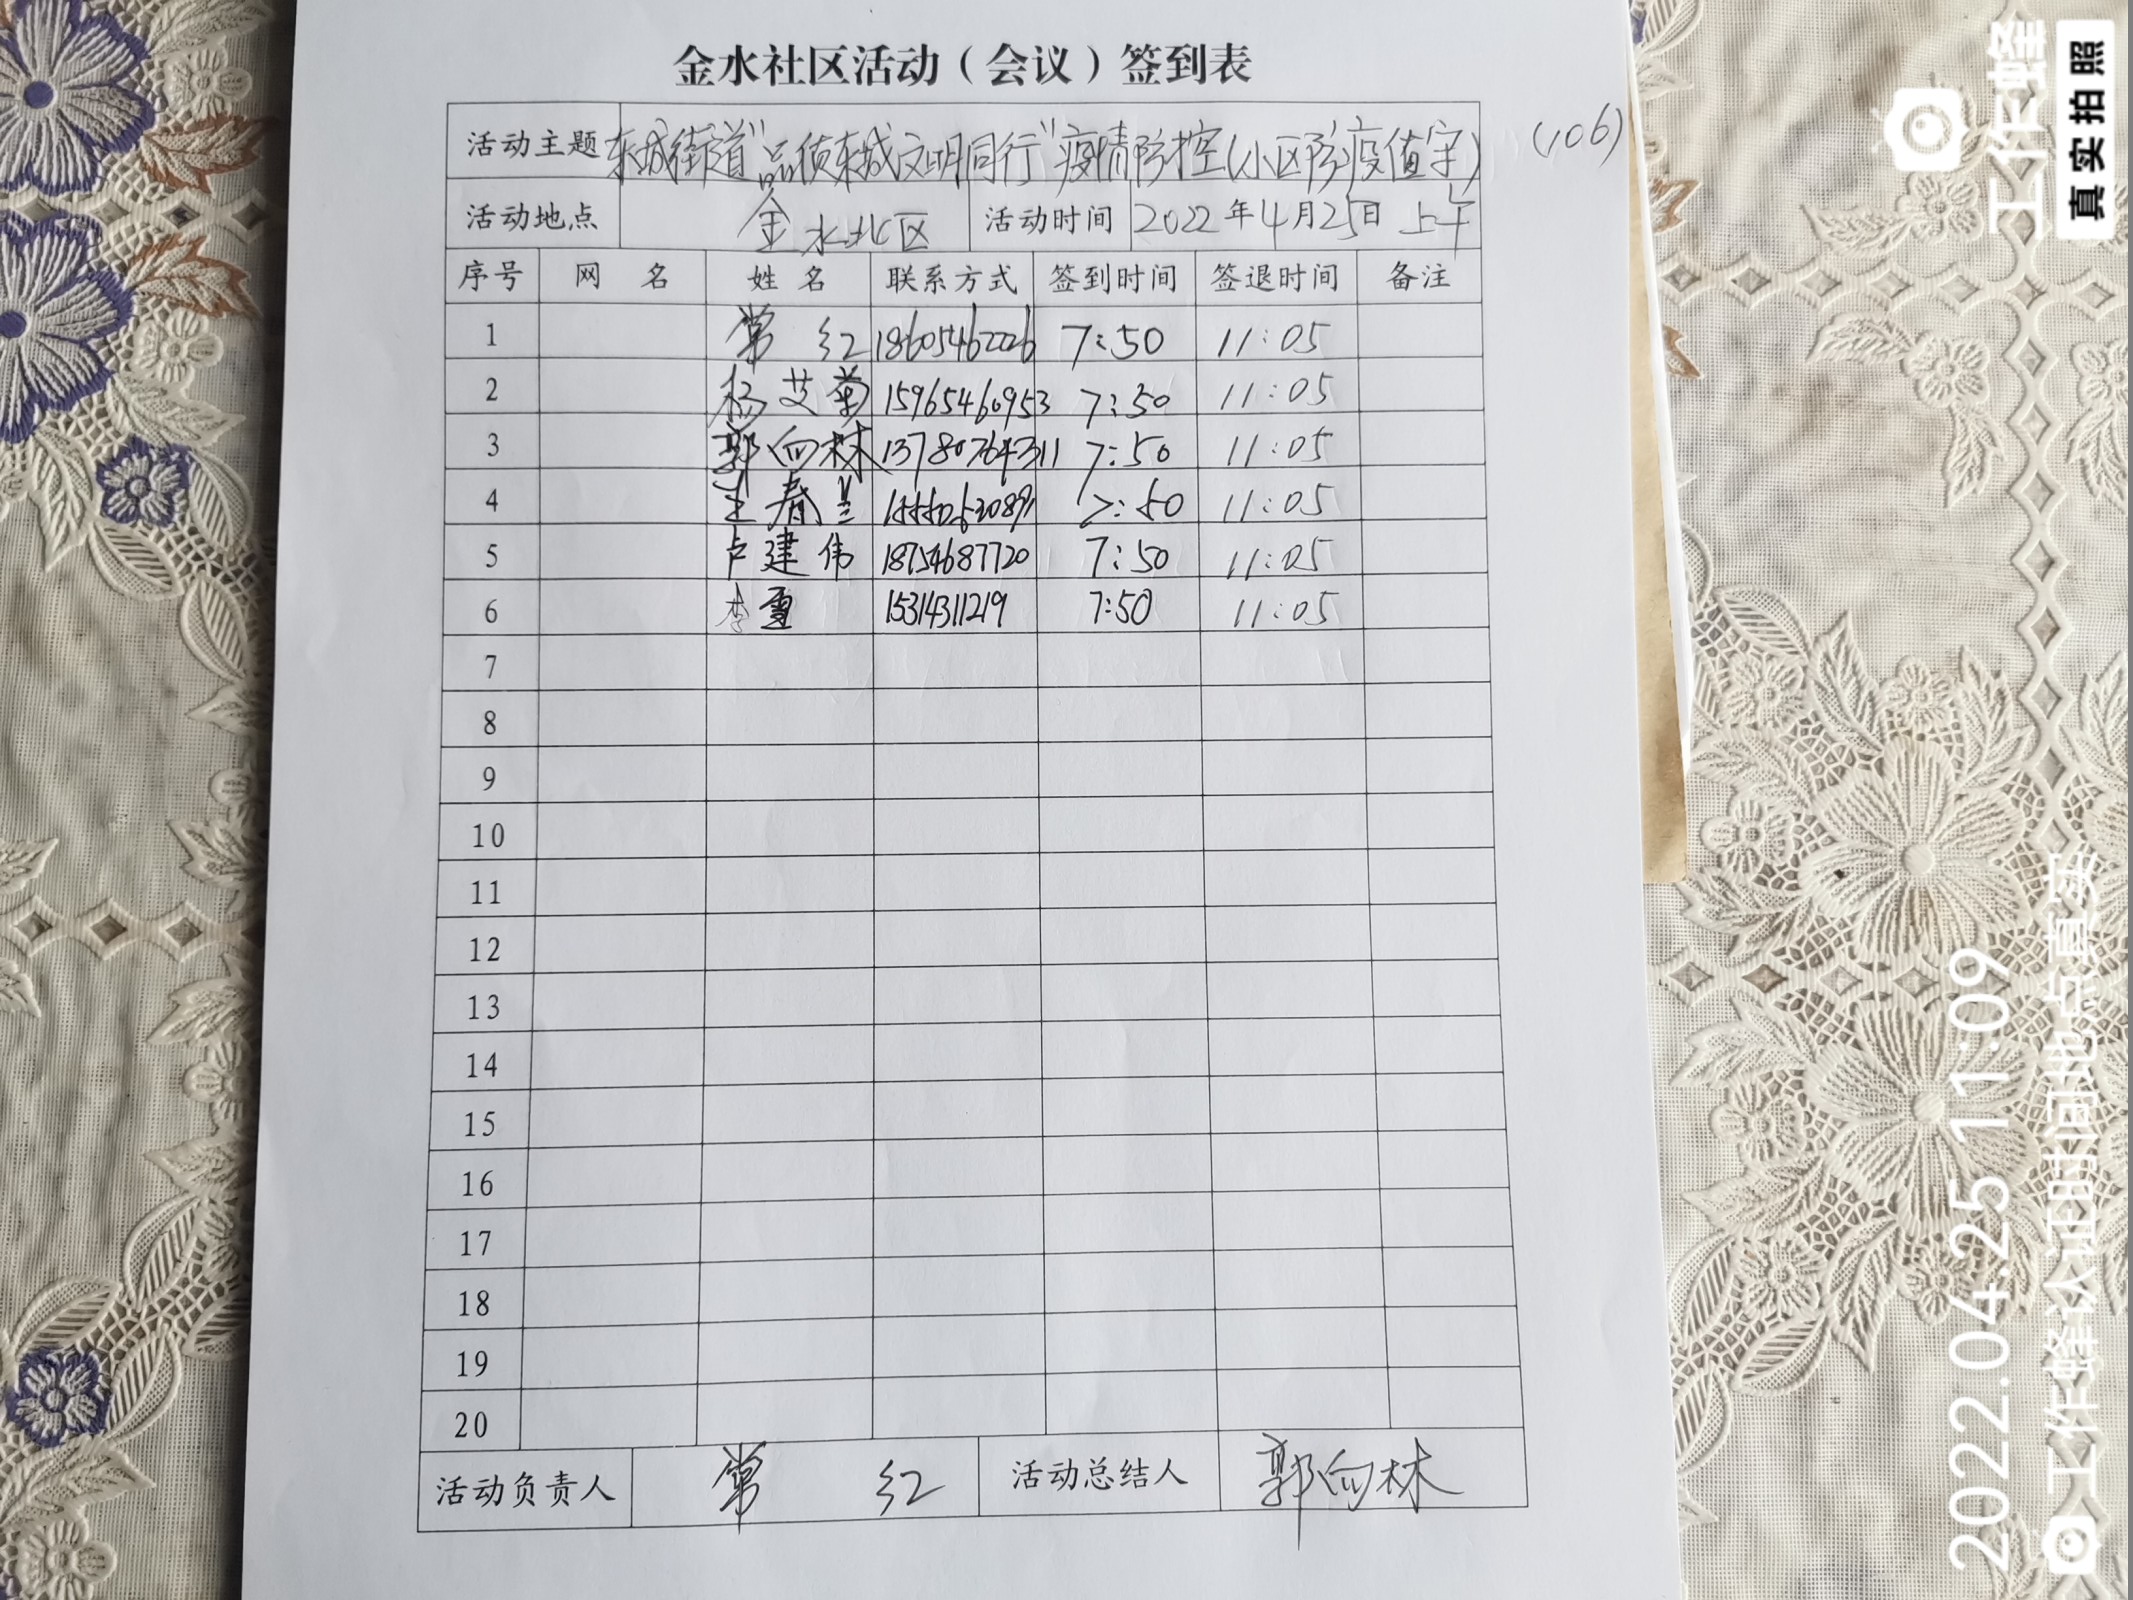 金水社区活动（会议）签到表
活动主题 东城街道"品质东城文明同行"疫情防控(小区防疫值守) (106)
活动地点 金水北区 活动时间 2022年4月25日 上午
序号 网 名 姓 名 联系方式 签到时间 签退时间 备注
1 常 红 18605462226 7:50 11:05
2 杨艾菊 15965460953 7:50 11:05
3 郭向林 13780764311 7:50 11:05
4 王春兰 7:50 11:05
5 卢建伟 18754687720 7:50 11:05
6 李 15314311219 7:50 11:05
7
8
9
10
11
12
13
14
15
16
17
18
19
20
活动负责人 常 红 活动总结人 郭向林
工作蜂
真实拍照
2022.04.25 11:09
工作蜂认证时间地点真实